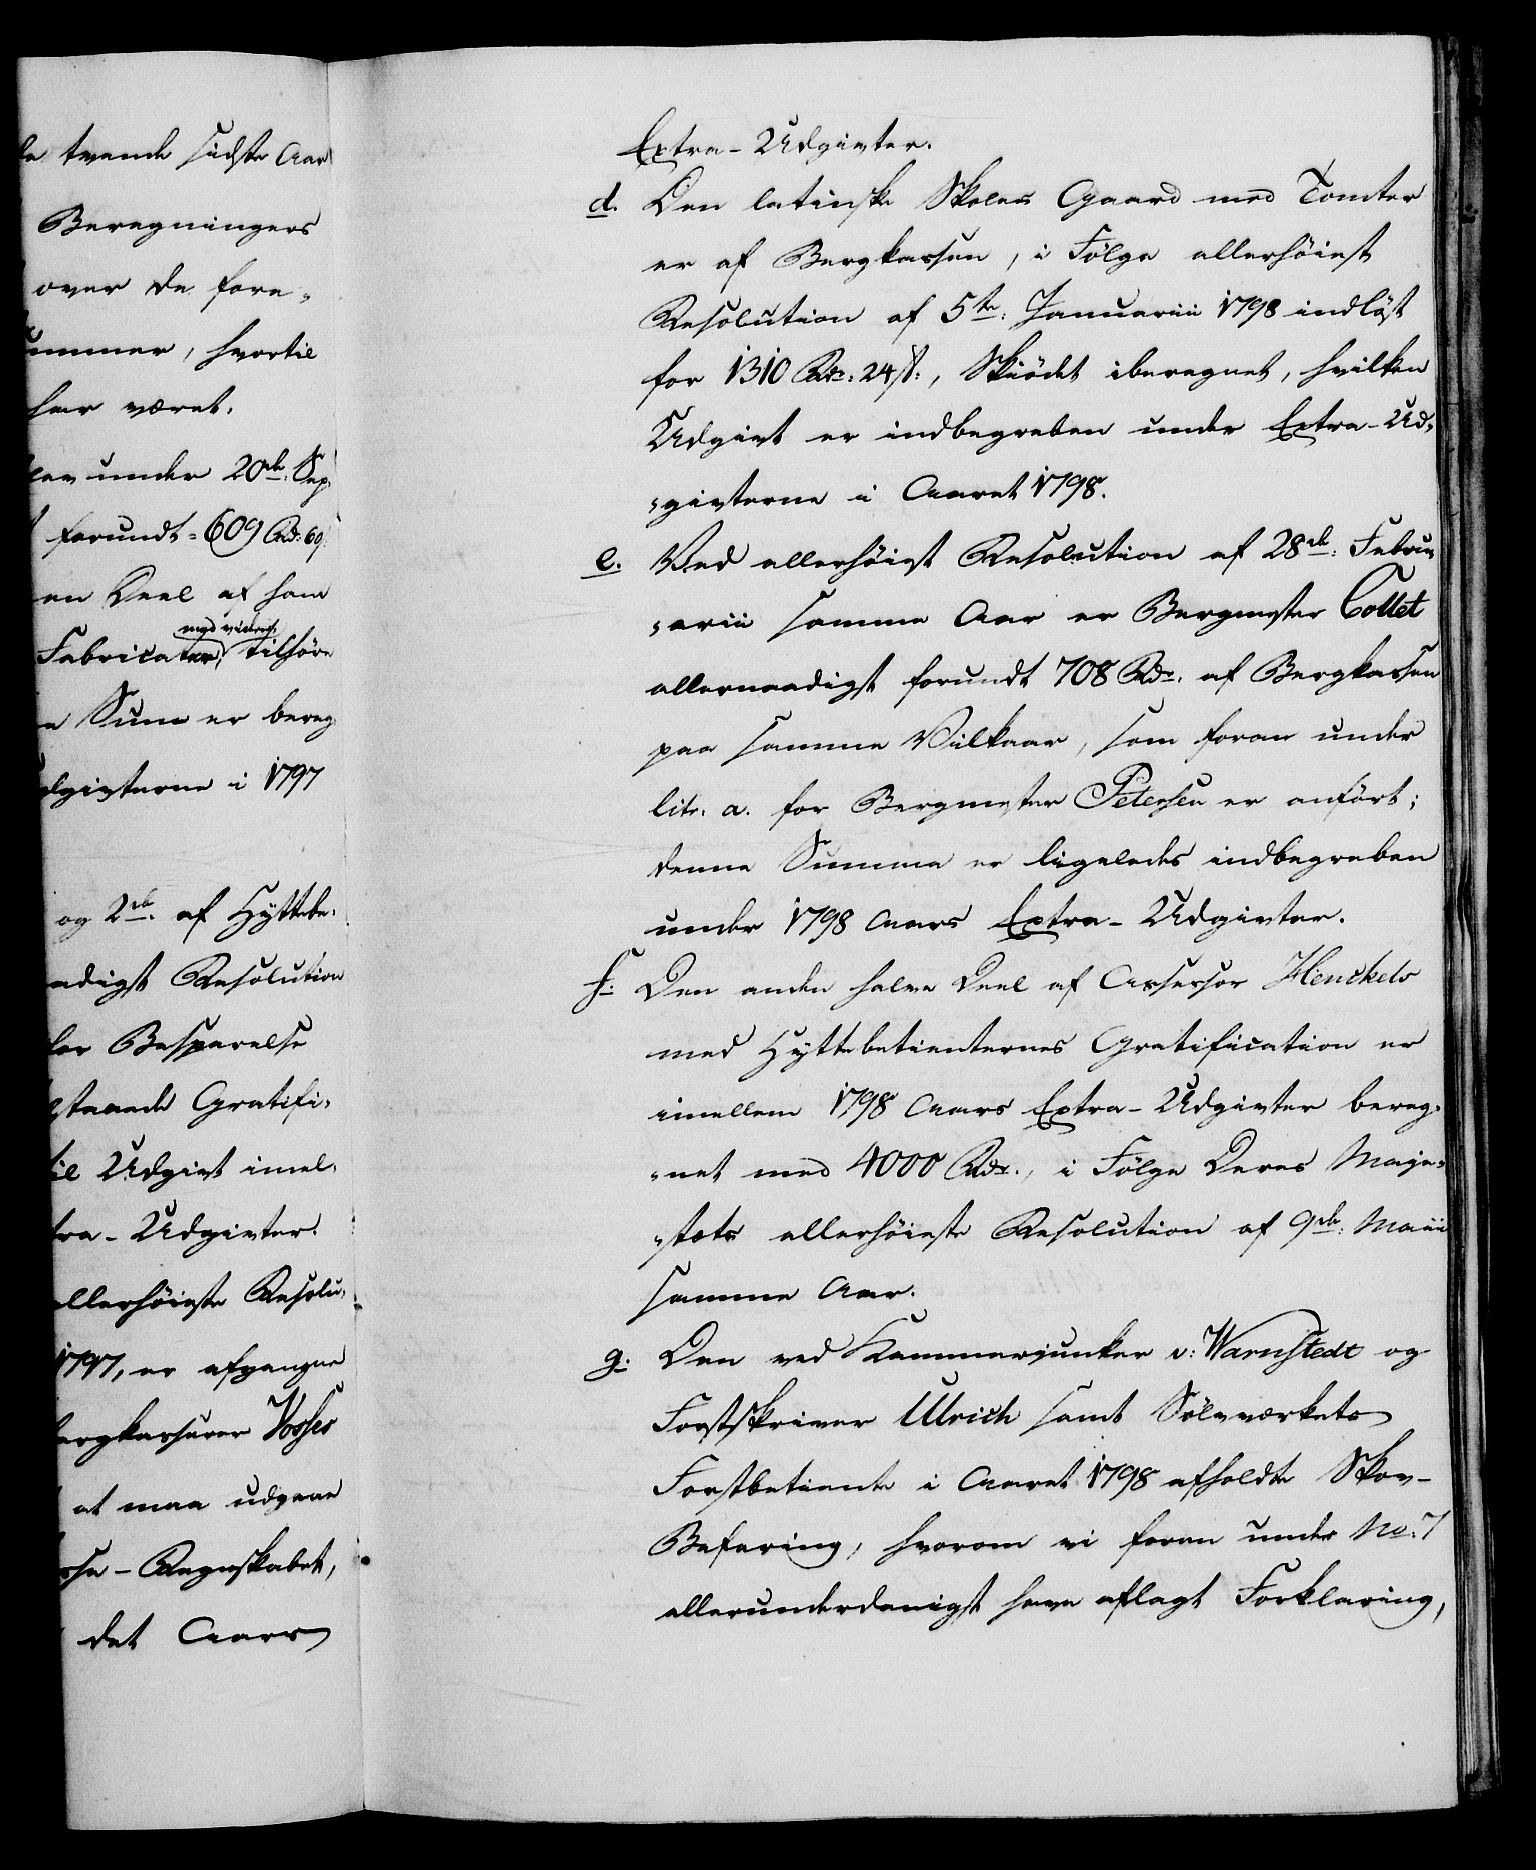 de tvende sidste Aar
Beregningers
over de fore-
ummer, hvortil
har været.
lev under 20de Sep
forundt - 609 Rd: 69
en Deel af ham
med videre,
Fabricater, tilhøre
e Sum er bereg
dgivterne i 1797
og 2de af Hyttebe-
adigst Resolution
for Besparelse
staaende Gratifi-
til Udgivt imel-
tra-Udgivter.
allerhøieste Resolu-
1797, er afgangne
ergkasserer Vosses
at maa udgaae
sse-Regnskabet,
det Aars
Extra-Udgivter.
d. Den latinske Skoles Gaard med Tomter
er af Bergkassen, i Følge allerhøiest
Resolution af 5te: Januarii 1798 indløst
for 1310 Rdr: 24 s:, Skiødet iberegnet, hvilken
Udgivt er indbegreben under Extra-Ud-
-givterne i Aaret 1798.
e. Ved allerhøigst Resolution af 28de: Febru-
-arii samme Aar er Bergmester Collet
allernaadigst forundt 708 Rdr. af Bergkassen
paa samme Vilkaar, som foran under
litr. a. for Bergmester Petersen er anført;
denne Summa er ligeledes indbegreben
under 1798 Aars Extra-Udgivter.
f. Den anden halve Deel af Assessor Henckels
med Hyttebetienternes Gratification er
imellem 1798 Aars Extra-Udgivter bereg-
-net med 4000 Rdr., i Følge Deres Maje-
-stæts allerhøieste Resolution af 9de: Maii
samme Aar.
g. Den ved Kammerjunker v: Warnstedt og
Forstskriver Ulrich samt Sølvværkets
Forstbetiente i Aaret 1798 afholdte Skov-
Befaring, hvorom vi foran under No. 7
allerunderdanigst have aflagt Forklaring,